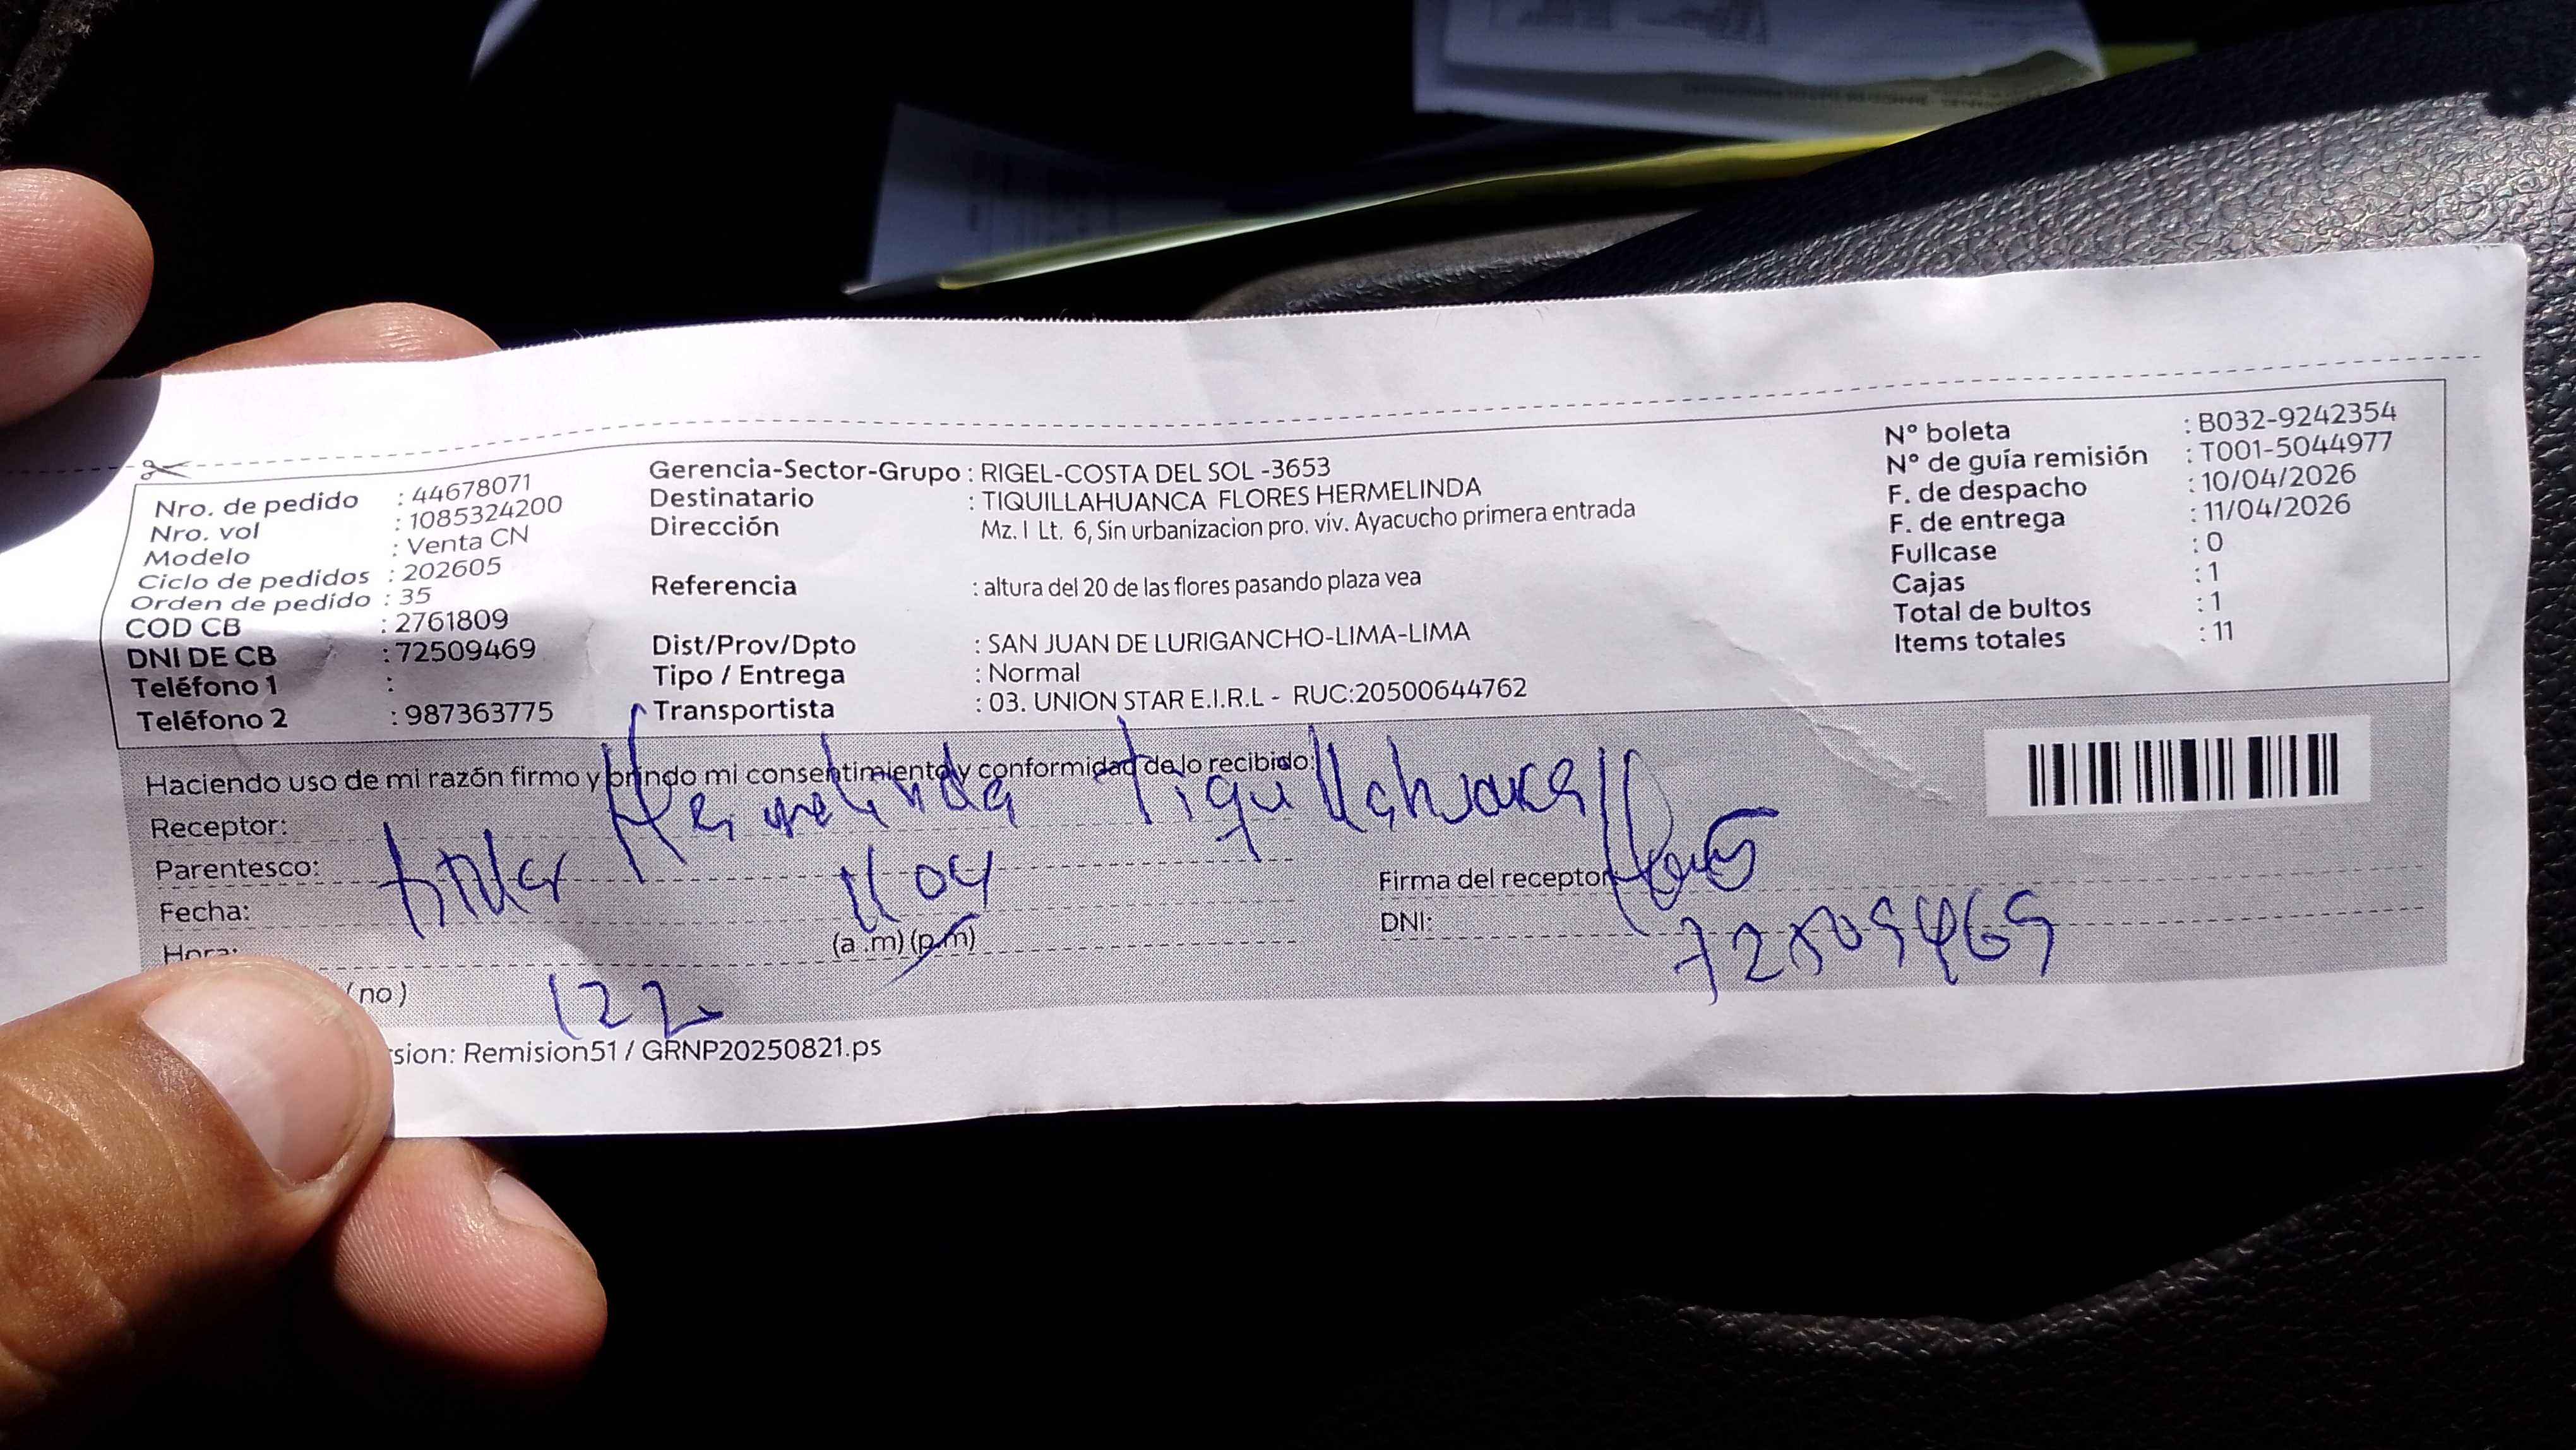 Nro. de pedido : 44678071
Nro. vol : 1085324200
Modelo : Venta CN
Ciclo de pedidos : 202605
Orden de pedido : 35
COD CB : 2761809
DNI DE CB : 72509469
Teléfono 1 :
Teléfono 2 : 987363775
Gerencia-Sector-Grupo : RIGEL-COSTA DEL SOL -3653
Destinatario : TIQUILLAHUANCA FLORES HERMELINDA
Dirección Mz. I Lt. 6, Sin urbanizacion pro. viv. Ayacucho primera entrada
Referencia : altura del 20 de las flores pasando plaza vea
Dist/Prov/Dpto : SAN JUAN DE LURIGANCHO-LIMA-LIMA
Tipo / Entrega : Normal
Transportista : 03. UNION STAR E.I.R.L - RUC:20500644762
N° boleta : B032-9242354
N° de guía remisión : T001-5044977
F. de despacho : 10/04/2026
F. de entrega : 11/04/2026
Fullcase : 0
Cajas : 1
Total de bultos : 1
Items totales : 11
Haciendo uso de mi razón firmo y brindo mi consentimiento y conformidad de lo recibido:
Receptor: Hermelinda Tiquillahuanca
Parentesco:
Fecha: 11 04
Hora: 122 (a.m) (p.m)
(no)
Firma del receptor
DNI: 72509469
sion: Remision51 / GRNP20250821.ps